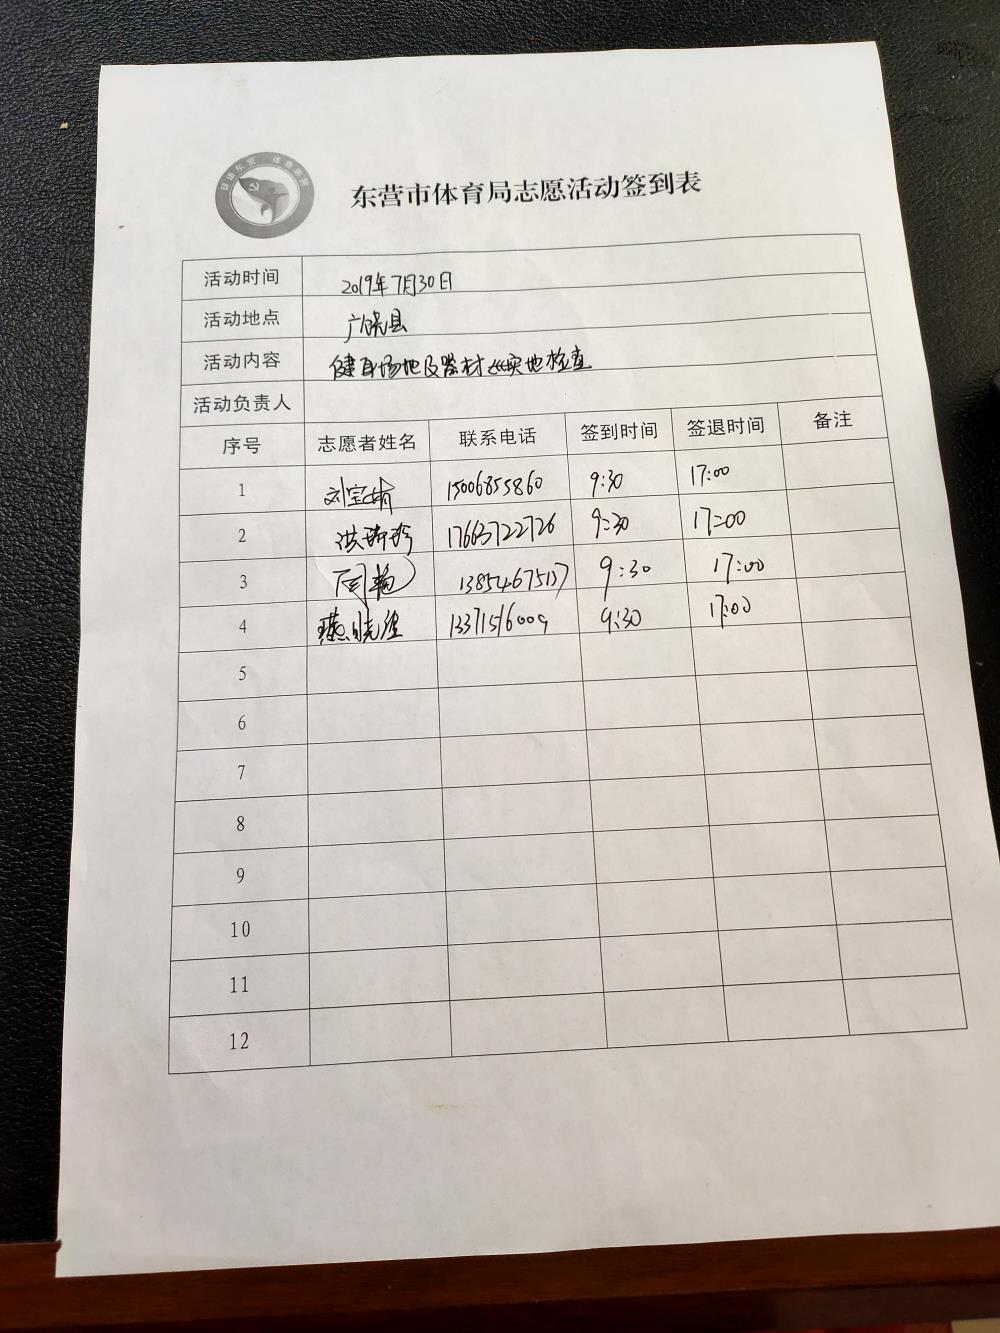 健康东营 体育惠民
东营市体育局志愿活动签到表
活动时间 2019年7月30日
活动地点 广饶县
活动内容 健身场地及器材实地检查
活动负责人
序号 志愿者姓名 联系电话 签到时间 签退时间 备注
1 刘宝娟 15006855860 9:30 17:00
2 洪 17663722726 9:30 17:00
3 周艳 13854675137 9:30 17:00
4 燕晓 13371516009 9:30 17:00
5
6
7
8
9
10
11
12